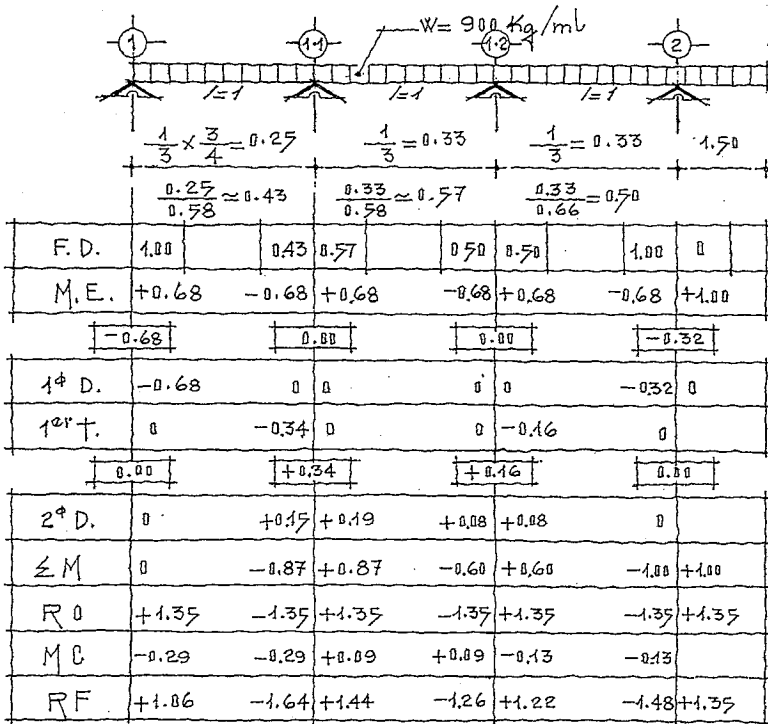 W= 900 Kg/ml
1 1.1 1.2 2
l=1 l=1 l=1
1/3 x 3/4 = 0.25 1/3 = 0.33 1/3 = 0.33 1.50
0.25/0.58 ≃ 0.43 0.33/0.58 ≃ 0.57 0.33/0.66 = 0.50
F.D. 1.00 0.43 0.57 0.50 0.50 1.00 0
M.E. +0.68 -0.68 +0.68 -0.68 +0.68 -0.68 +1.00
-0.68 0.00 0.00 -0.32
1ª D. -0.68 0 0 0 0 -0.32 0
1er T. 0 -0.34 0 0 -0.16 0
0.00 +0.34 +0.16 0.00
2ª D. 0 +0.15 +0.19 +0.08 +0.08 0
ΣM 0 -0.87 +0.87 -0.60 +0.60 -1.00 +1.00
R0 +1.35 -1.35 +1.35 -1.35 +1.35 -1.35 +1.35
MC -0.29 -0.29 +0.09 +0.09 -0.13 -0.13
RF +1.06 -1.64 +1.44 -1.26 +1.22 -1.48 +1.35